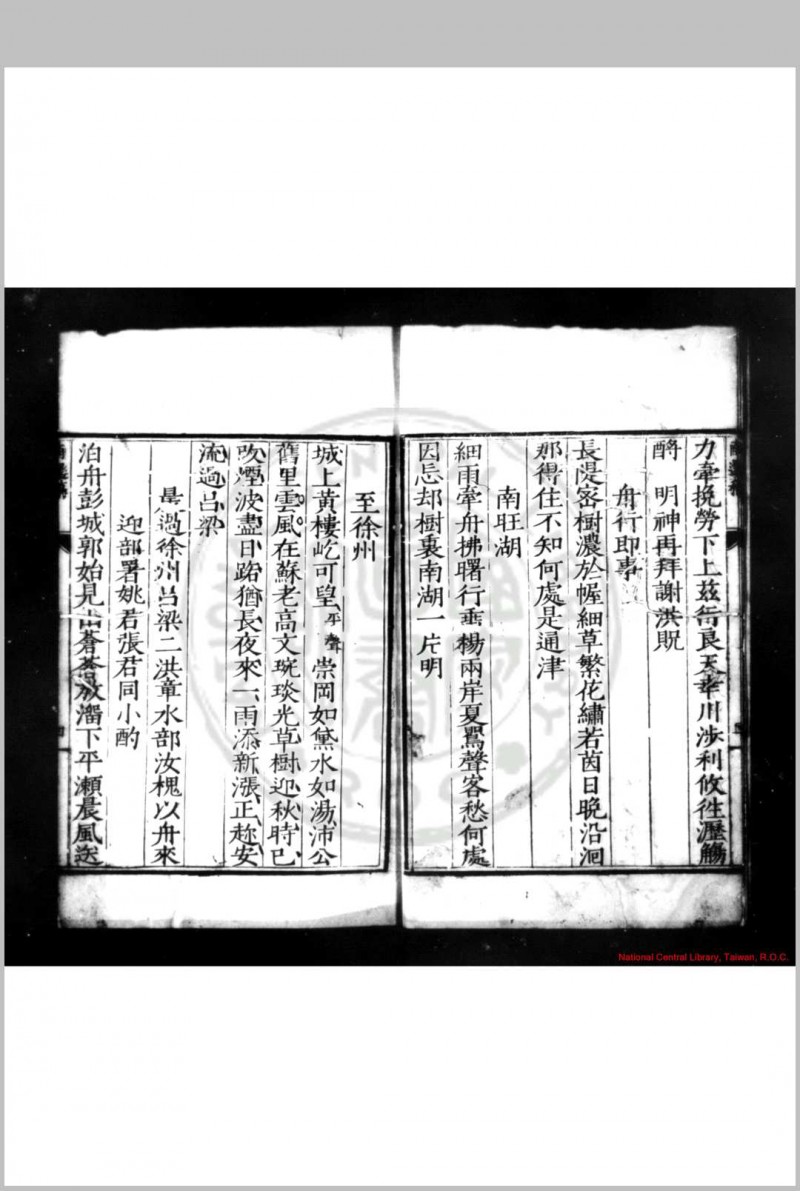 力牽挽勞下上兹衍良天幸川涉利攸往瀝觴
酹 明神再拜謝洪貺
舟行即事
長隄密樹濃於幄細草繁花繡若茵日晚沿洄
那得住不知何處是通津
南旺湖
細雨牽舟拂曙行垂楊兩岸夏鸎聲客愁何處
因忘却樹裏南湖一片明
至徐州
城上黄樓屹可望平聲崇岡如黛水如湯沛公
舊里雲風在蘇老高文琬琰光草樹迎秋時已
改煙波盡日路猶長夜來一雨添新漲正趂安
流過呂梁
是過徐州呂梁二洪章水部汝槐以舟來
迎部署姚君張君同小酌
泊舟彭城郭始見山蒼蒼放溜下平瀬晨風送
National Central Library, Taiwan, R.O.C.